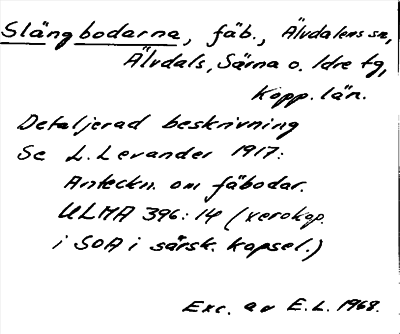 Slängbodarna, fäb., Älvdalens sn,
Älvdals, Särna o. Idre tg,
Kopp. län.
Detaljerad beskrivning
Se L. Levander 1917:
Anteckn. om fäbodar.
ULMA 396:14 (xerokop.
i SOA i särsk. kapsel.)
Exc. av E.L. 1968.